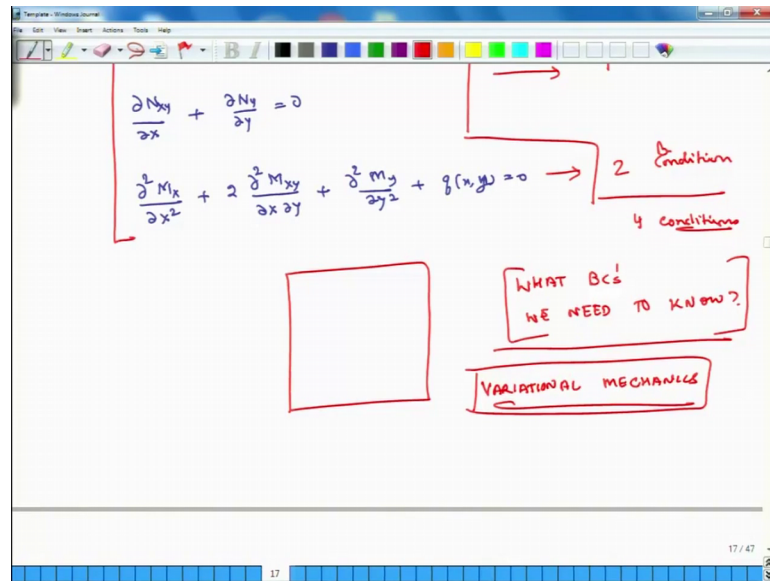 Template - Windows Journal
File Edit View Insert Actions Tools Help
B I
∂Nxy/∂x + ∂Ny/∂y = 0
∂²Mx/∂x² + 2 ∂²Mxy/∂x∂y + ∂²My/∂y² + q(x,y) = 0 → 2 Condition
4 conditions
WHAT BC's
WE NEED TO KNOW?
VARIATIONAL MECHANICS
17 / 47
17